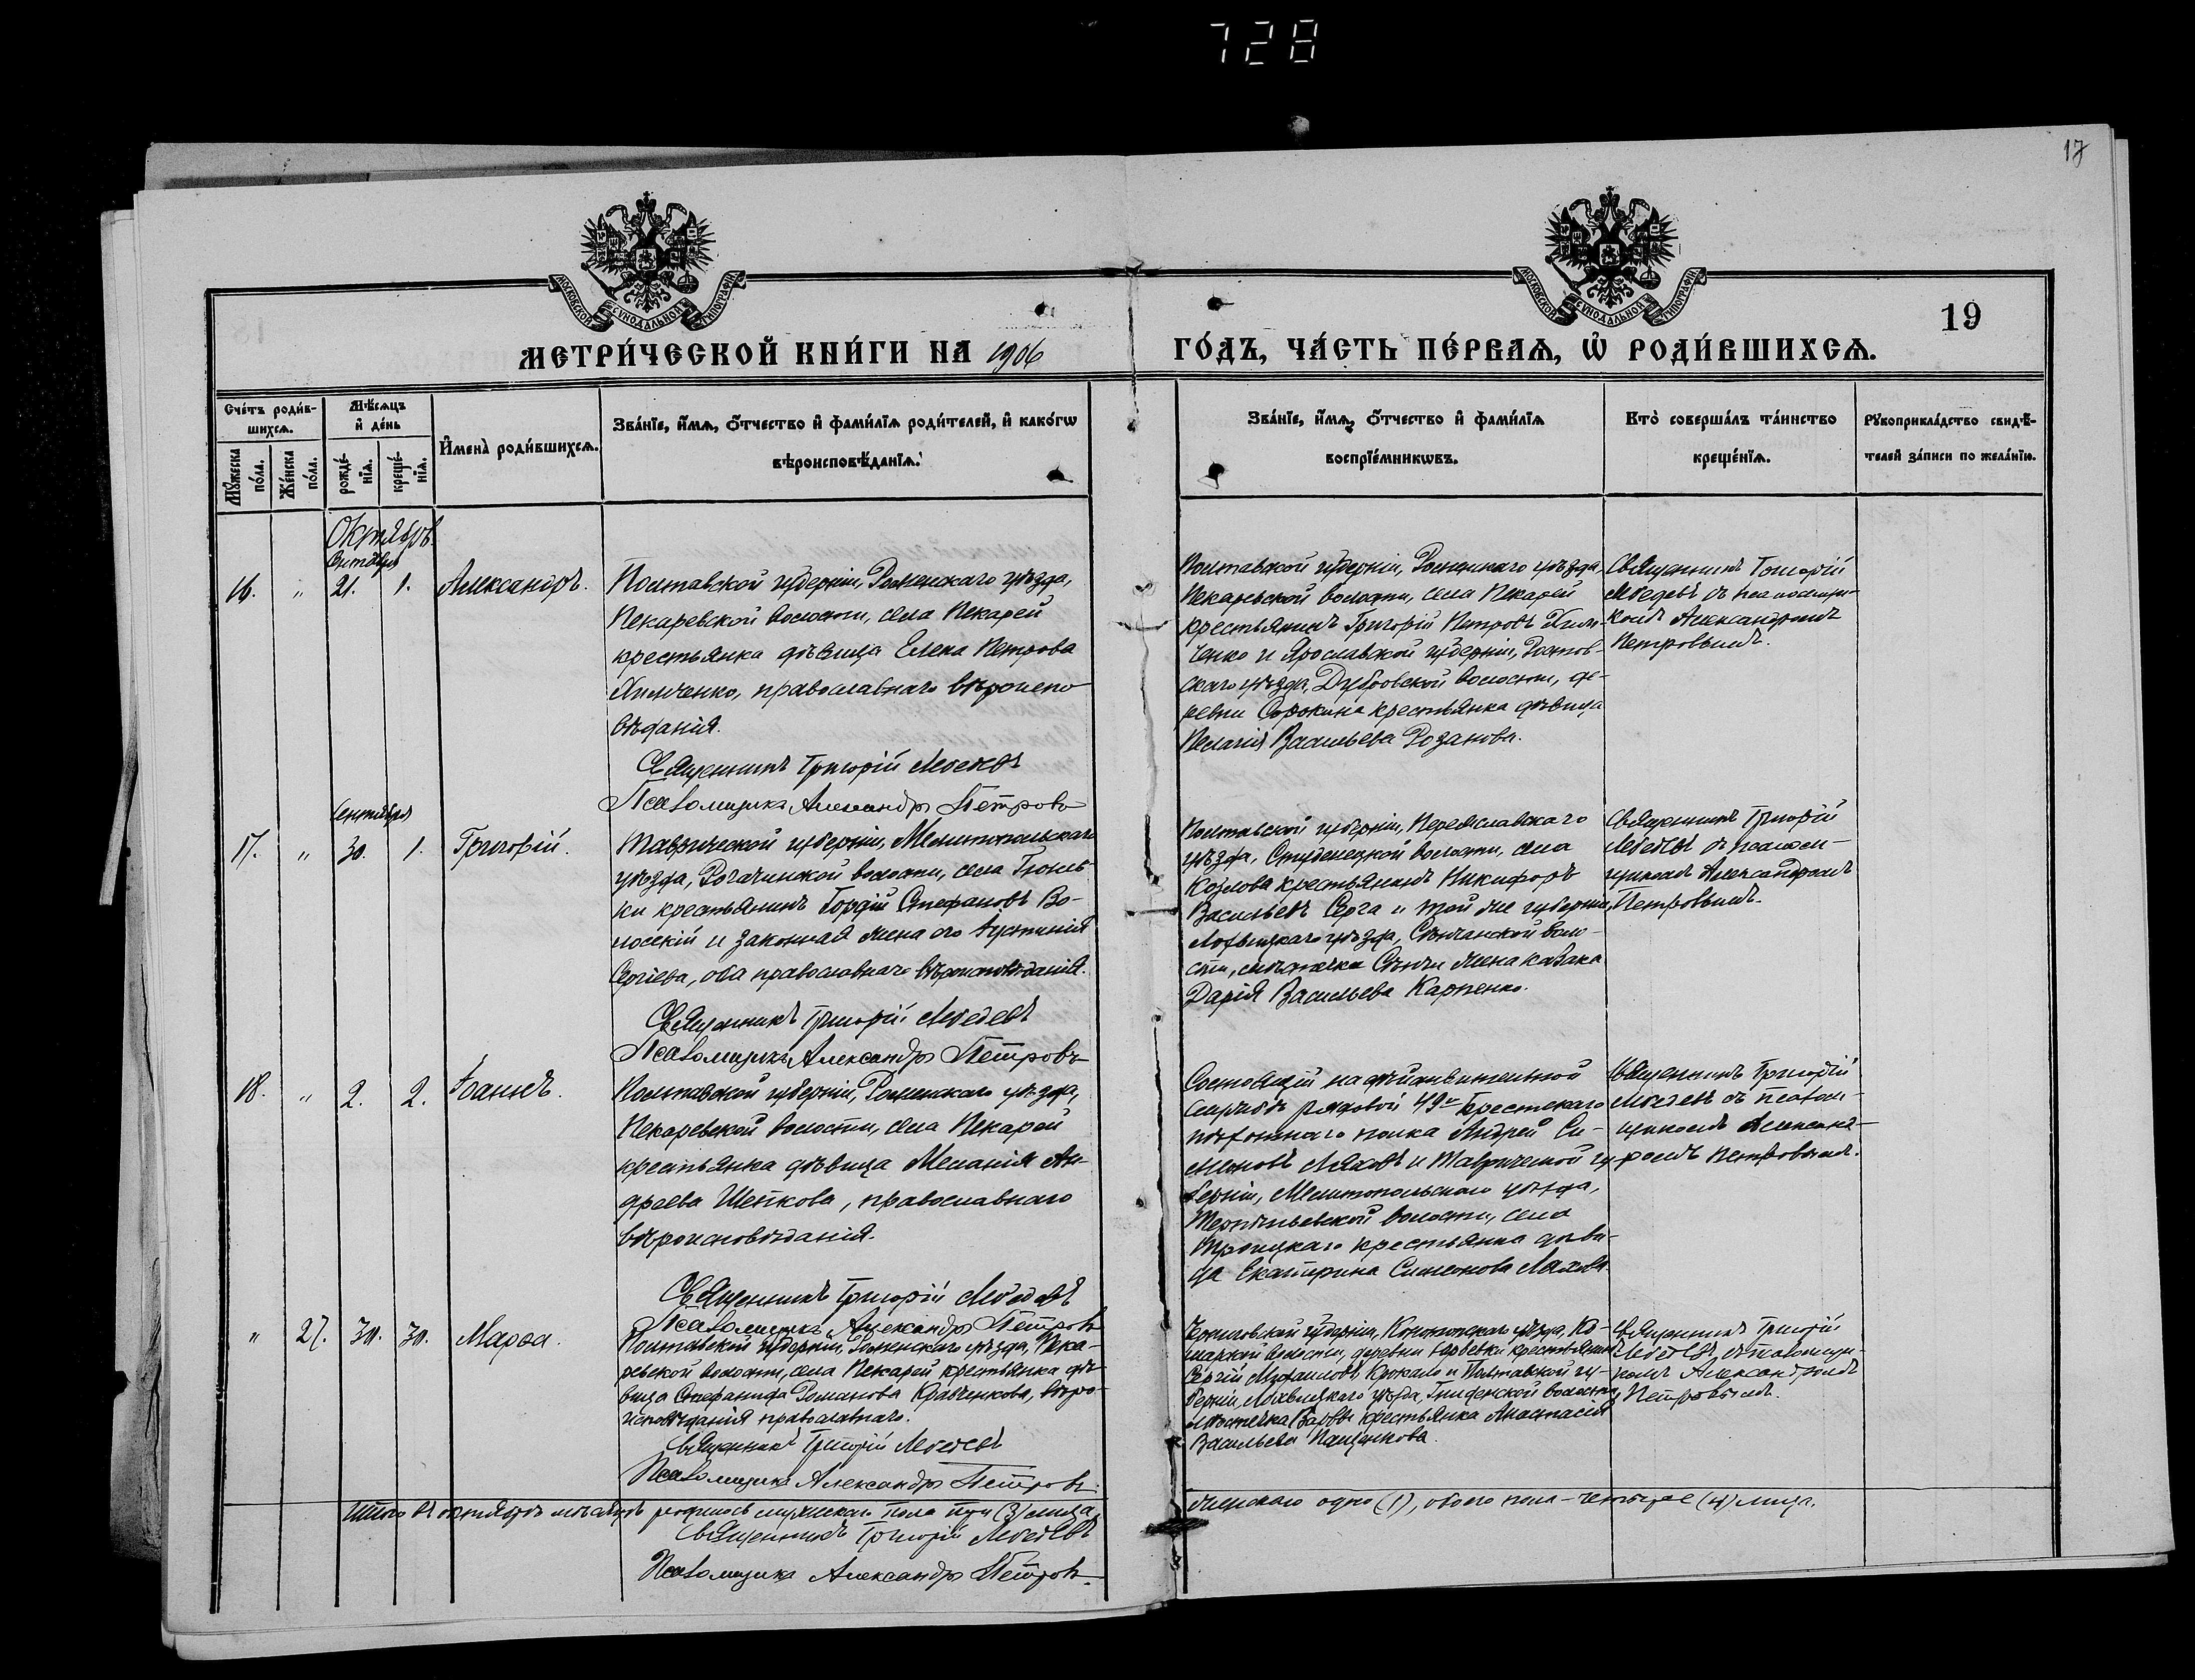 728
17
МОСКОВСКОЙ СѴНОДАЛЬНОЙ ТИПОГРАФІИ
МОСКОВСКОЙ СѴНОДАЛЬНОЙ ТИПОГРАФІИ
19
МЕТРИ́ЧЕСКОЙ КНИ́ГИ НА 1906 ГО́ДЪ, ЧА́СТЬ ПЕ́РВАѦ, Ѡ҆ РОДИ́ВШИХСѦ.
Сче́тъ роди́в-
шихсѧ.
Мꙋ́жеска по́ла.
Же́нска по́ла.
Мѣ́сѧцъ
и҆ де́нь
рожде́-
нїѧ.
креще́-
нїѧ.
И҆мена̀ роди́вшихсѧ.
Зва́нїе, и҆́мѧ, ѻ҆́тчество и҆ фами́лїѧ роди́телей, и҆ како́гѡ
вѣроисповѣ́данїѧ.
Зва́нїе, и҆́мѧ, ѻ҆́тчество и҆ фами́лїѧ
воспрїе́мникѡвъ.
Кто̀ соверша́лъ та́инство
креще́нїѧ.
Рꙋкоприкла́дство свидѣ́-
телей за́писи по жела́нїю.
Октябрь.
Сентября
16. " 21. 1. Александръ.
Полтавской губерніи, Роменскаго уѣзда,
Пекаревской волости, села Пекарей
крестьянка дѣвица Елена Петрова
Химченко, православнаго вѣроиспо-
вѣданія.
Священникъ Григорій Лебедевъ
Псаломщикъ Александръ Петровъ
Полтавской губерніи, Роменскаго уѣзда,
Пекаревской волости, села Пекарей
крестьянинъ Григорій Петровъ Хим-
ченко и Ярославской губерніи, Ростов-
скаго уѣзда, Дубровской волости, де-
ревни Сорокина крестьянка дѣвица
Пелагія Васильева Розанова.
Священникъ Григорій
Лебедевъ съ псаломщи-
комъ Александромъ
Петровымъ.
Сентября
17. " 30. 1. Григорій.
Таврической губерніи, Мелитопольскаго
уѣзда, Рогачинской волости, села
крестьянинъ Гордій Стефановъ Во-
лосскій и законная жена его Іустинія
Сергіева, оба православнаго вѣроисповѣданія.
Священникъ Григорій Лебедевъ
Псаломщикъ Александръ Петровъ
Полтавской губерніи, Переяславскаго
уѣзда, Студенецкой волости, села
Козлова крестьянинъ Никифоръ
Васильевъ Серга и той же губерніи,
Лохвицкаго уѣзда, Сѣнчанской воло-
сти, мѣстечка Сѣнчи жена казака
Дарія Васильева Карпенко.
Священникъ Григорій
Лебедевъ съ псалом-
щикомъ Александромъ
Петровымъ.
18. " 2. 2. Іоаннъ.
Полтавской губерніи, Роменскаго уѣзда,
Пекаревской волости, села Пекарей
крестьянка дѣвица Меланія Ан-
дреева Шепкова, православнаго
вѣроисповѣданія.
Священникъ Григорій Лебедевъ
Псаломщикъ Александръ Петровъ
Состоящій на дѣйствительной
службѣ рядовой 49го Брестскаго
пѣхотнаго полка Андрей Си-
меновъ Ляховъ и Таврической гу-
берніи, Мелитопольскаго уѣзда,
Терпѣньевской волости, села
Троицкаго крестьянка дѣви-
ца Екатерина Симонова Ляхова.
Священникъ Григорій
Лебедевъ съ псалом-
щикомъ Александ-
ромъ Петровымъ.
" 27. 30. 30. Марѳа.
Полтавской губерніи, Роменскаго уѣзда, Пека-
ревской волости, села Пекарей крестьянка дѣ-
вица Стефанида Романова Кравченкова, вѣро-
исповѣданія православнаго.
Священникъ Григорій Лебедевъ
Псаломщикъ Александръ Петровъ.
Черниговской губерніи, Конотопскаго уѣзда,
волости, деревни крестьянинъ
Сергій Михаиловъ и Полтавской гу-
берніи, Лохвицкаго уѣзда, волости,
мѣстечка Варвы крестьянка Анастасія
Васильева Пащенкова.
Священникъ Григорій
Лебедевъ съ псаломщи-
комъ Александромъ
Петровымъ.
Итого въ октябрѣ мѣсяцѣ родилось мужескаго пола три (3) лица, женскаго одно (1), обоего пола – четыре (4) лица.
Священникъ Григорій Лебедевъ
Псаломщикъ Александръ Петровъ.